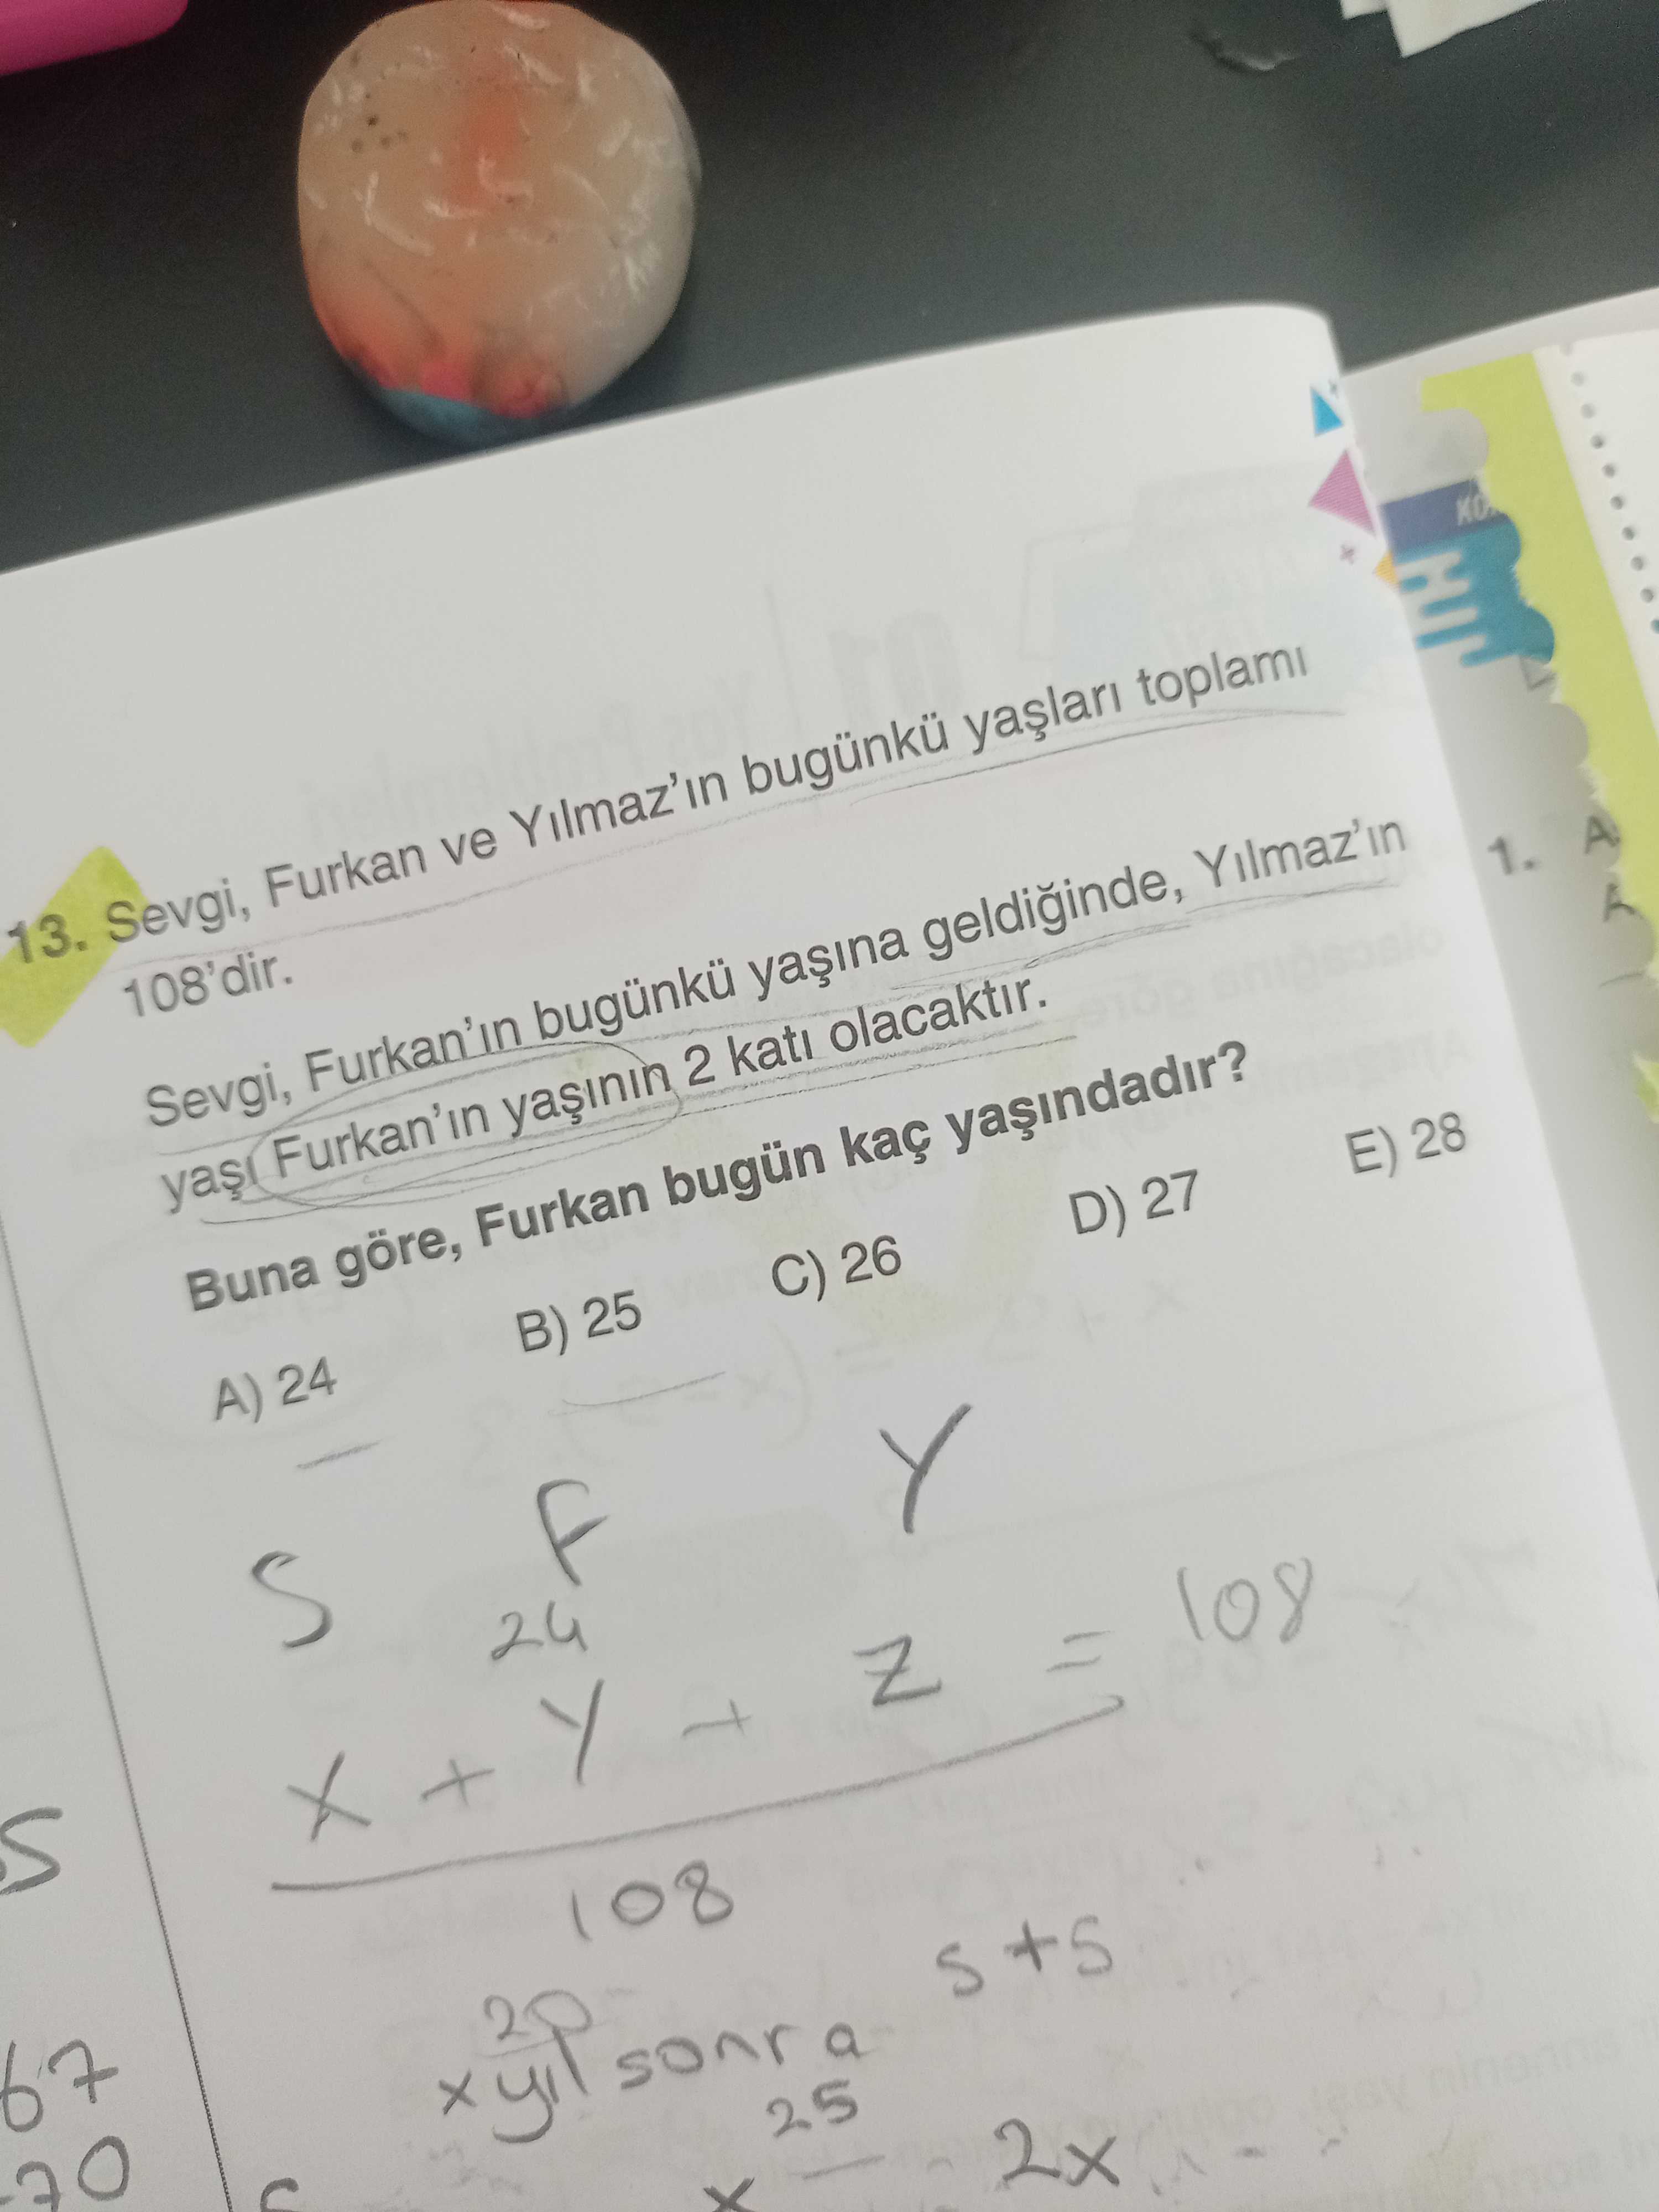 13. Sevgi, Furkan ve Yılmaz'ın bugünkü yaşları toplamı
108'dir.
Sevgi, Furkan'ın bugünkü yaşına geldiğinde, Yılmaz'ın
yaşı Furkan'ın yaşının 2 katı olacaktır.
Buna göre, Furkan bugün kaç yaşındadır?
A) 24 B) 25 C) 26 D) 27 E) 28
S F Y
24
x + y + z = 108
108
20
s + s
x yıl sonra
25
x 2x
67
70
1.